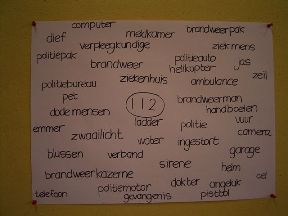 computer
dief
meldkamer
brandweerpak
verpleegkundige
ziek mens
politiepak
politieauto
brandweer
helikopter
jas
ziekenhuis
ambulance
zeil
politiebureau
pet
brandweerman
112
handboeien
dode mensen
ladder
vuur
emmer
politie
camera
zwaailicht
water
ingestort
garage
blussen
verband
sirene
helm
brandweerkazerne
cel
dokter
ongeluk
politiemotor
telefoon
gevangenis
pistool